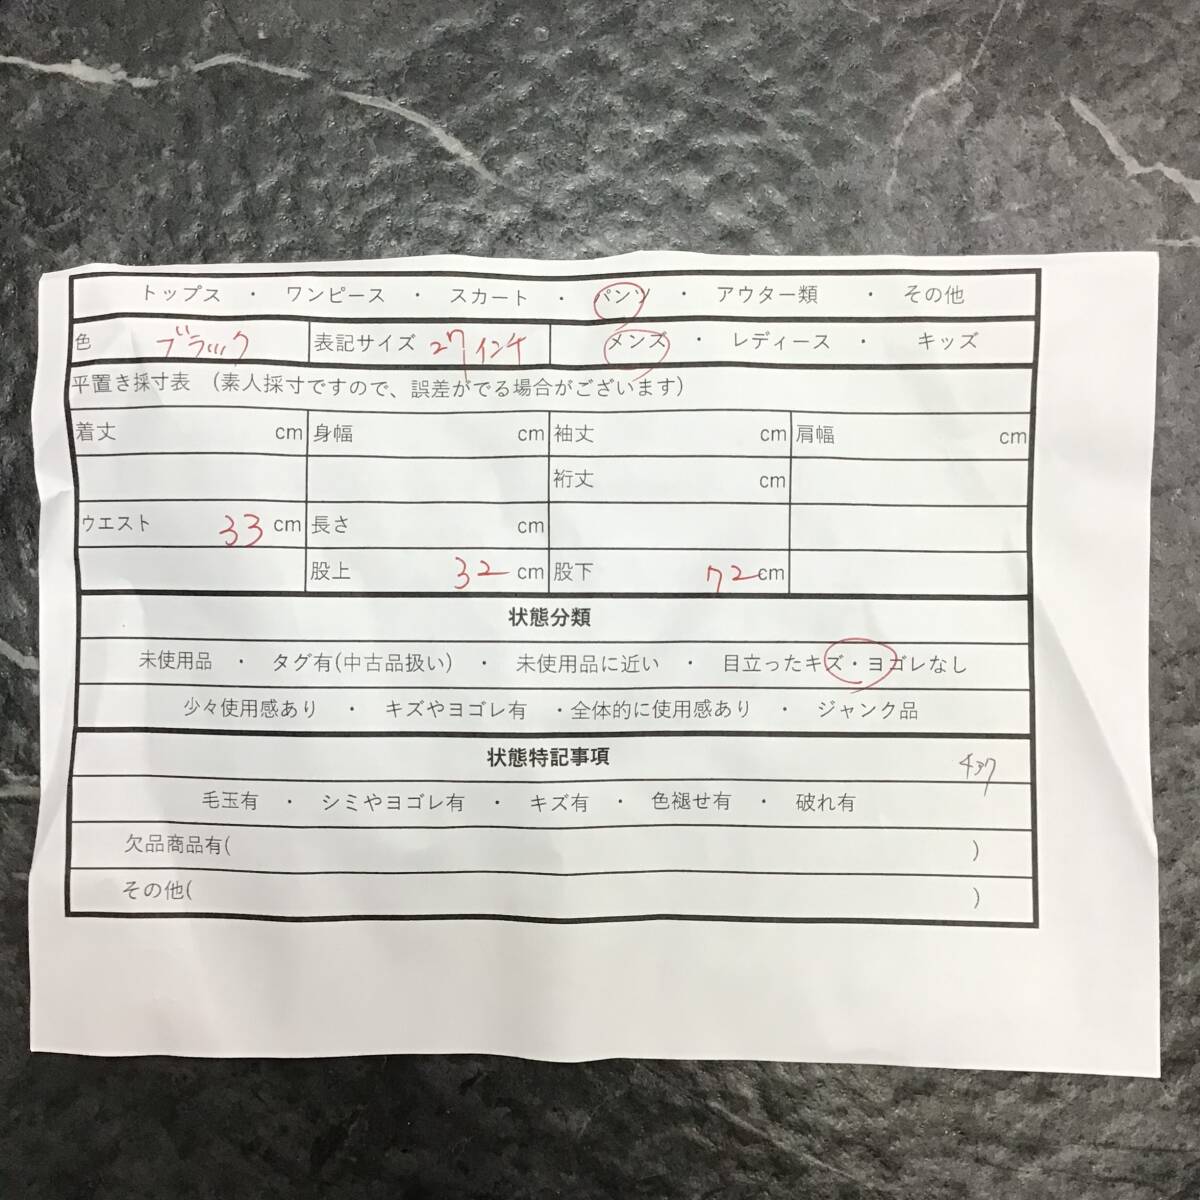 トップス ・ ワンピース ・ スカート ・ パンツ ・ アウター類 ・ その他
色 ブラック 表記サイズ 27インチ メンズ ・ レディース ・ キッズ
平置き採寸表 (素人採寸ですので、誤差がでる場合がございます)
着丈 cm 身幅 cm 袖丈 cm 肩幅 cm
裄丈 cm
ウエスト 33 cm 長さ cm
股上 32 cm 股下 72 cm
状態分類
未使用品 ・ タグ有(中古品扱い) ・ 未使用品に近い ・ 目立ったキズ・ヨゴレなし
少々使用感あり ・ キズやヨゴレ有 ・全体的に使用感あり ・ ジャンク品
状態特記事項
437
毛玉有 ・ シミやヨゴレ有 ・ キズ有 ・ 色褪せ有 ・ 破れ有
欠品商品有( )
その他( )